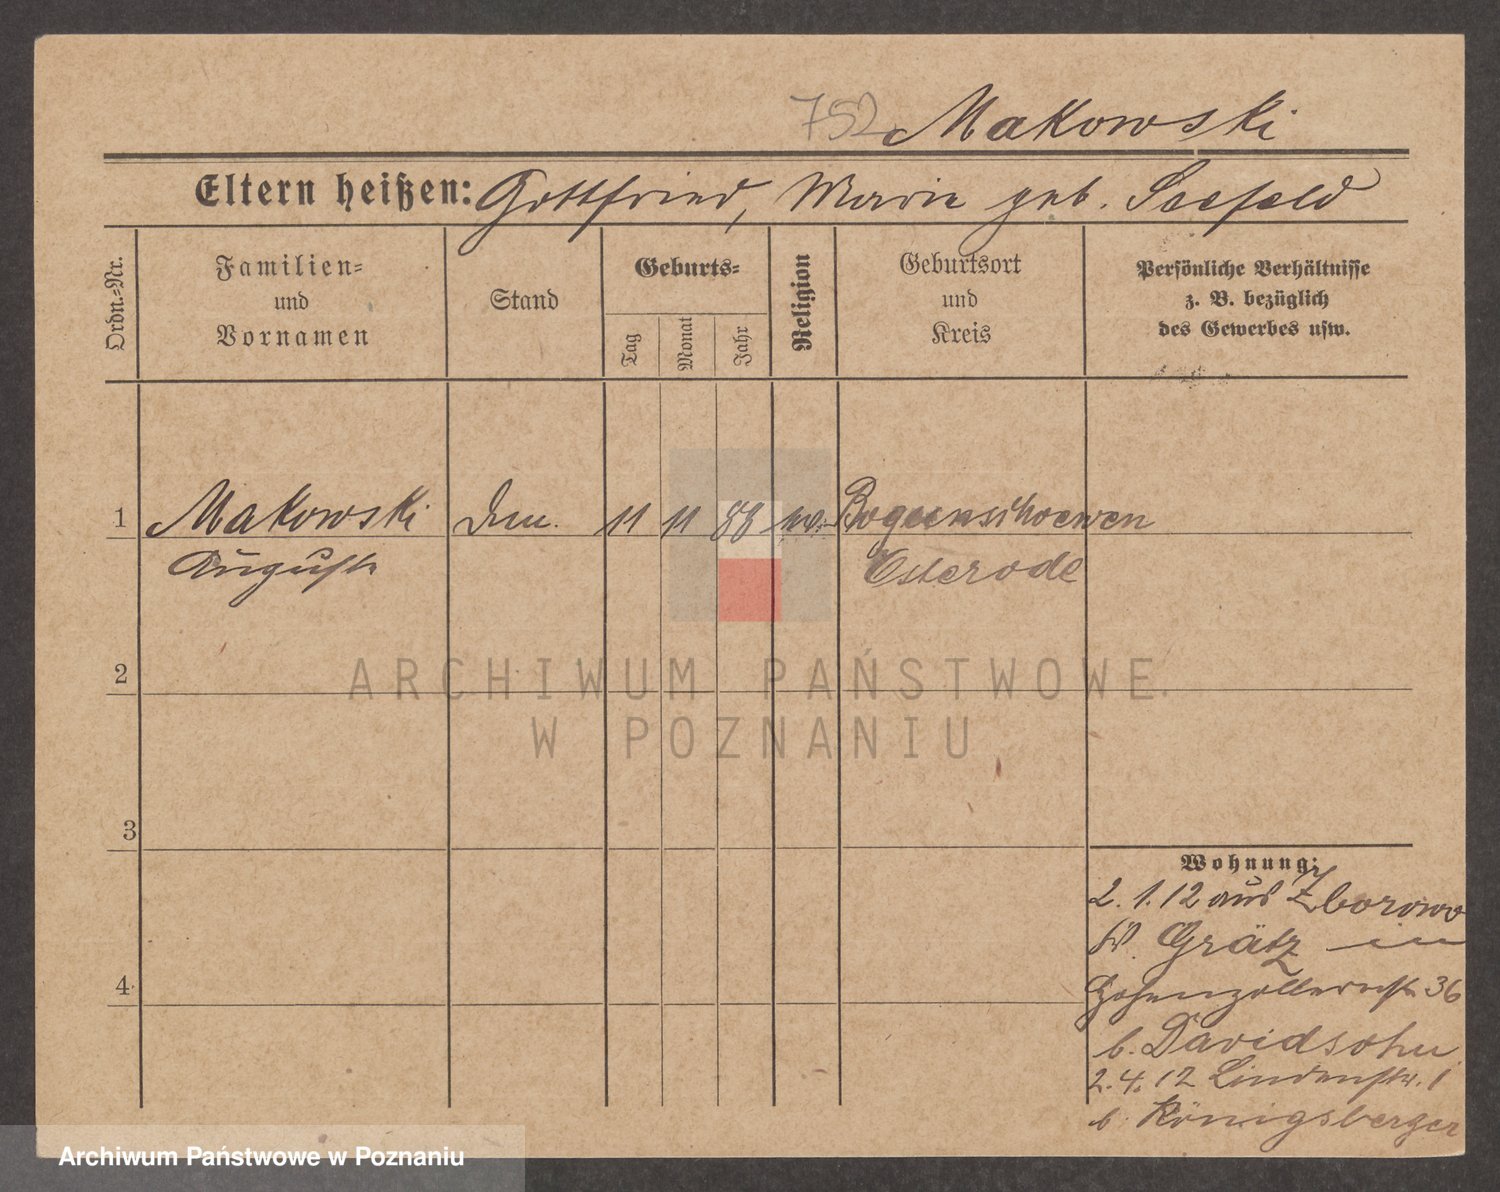 752 Makowski
Eltern heißen: Gottfried, Marie geb. Seefeld
Ordn.-Nr.
Familien-
und
Vornamen
Stand
Geburts-
Tag
Monat
Jahr
Religion
Geburtsort
und
Kreis
Persönliche Verhältnisse
z. B. bezüglich
des Gewerbes usw.
1 Makowski 11 11 88
August Osterode
2
3
4
Wohnung:
2. 1. 12 aus Zborowo
Grätz in
Hohenzollernstr 36
b. Davidsohn
2. 4. 12 Lindenstr. 1
b. Königsberger
ARCHIWUM PAŃSTWOWE
W POZNANIU
Archiwum Państwowe w Poznaniu